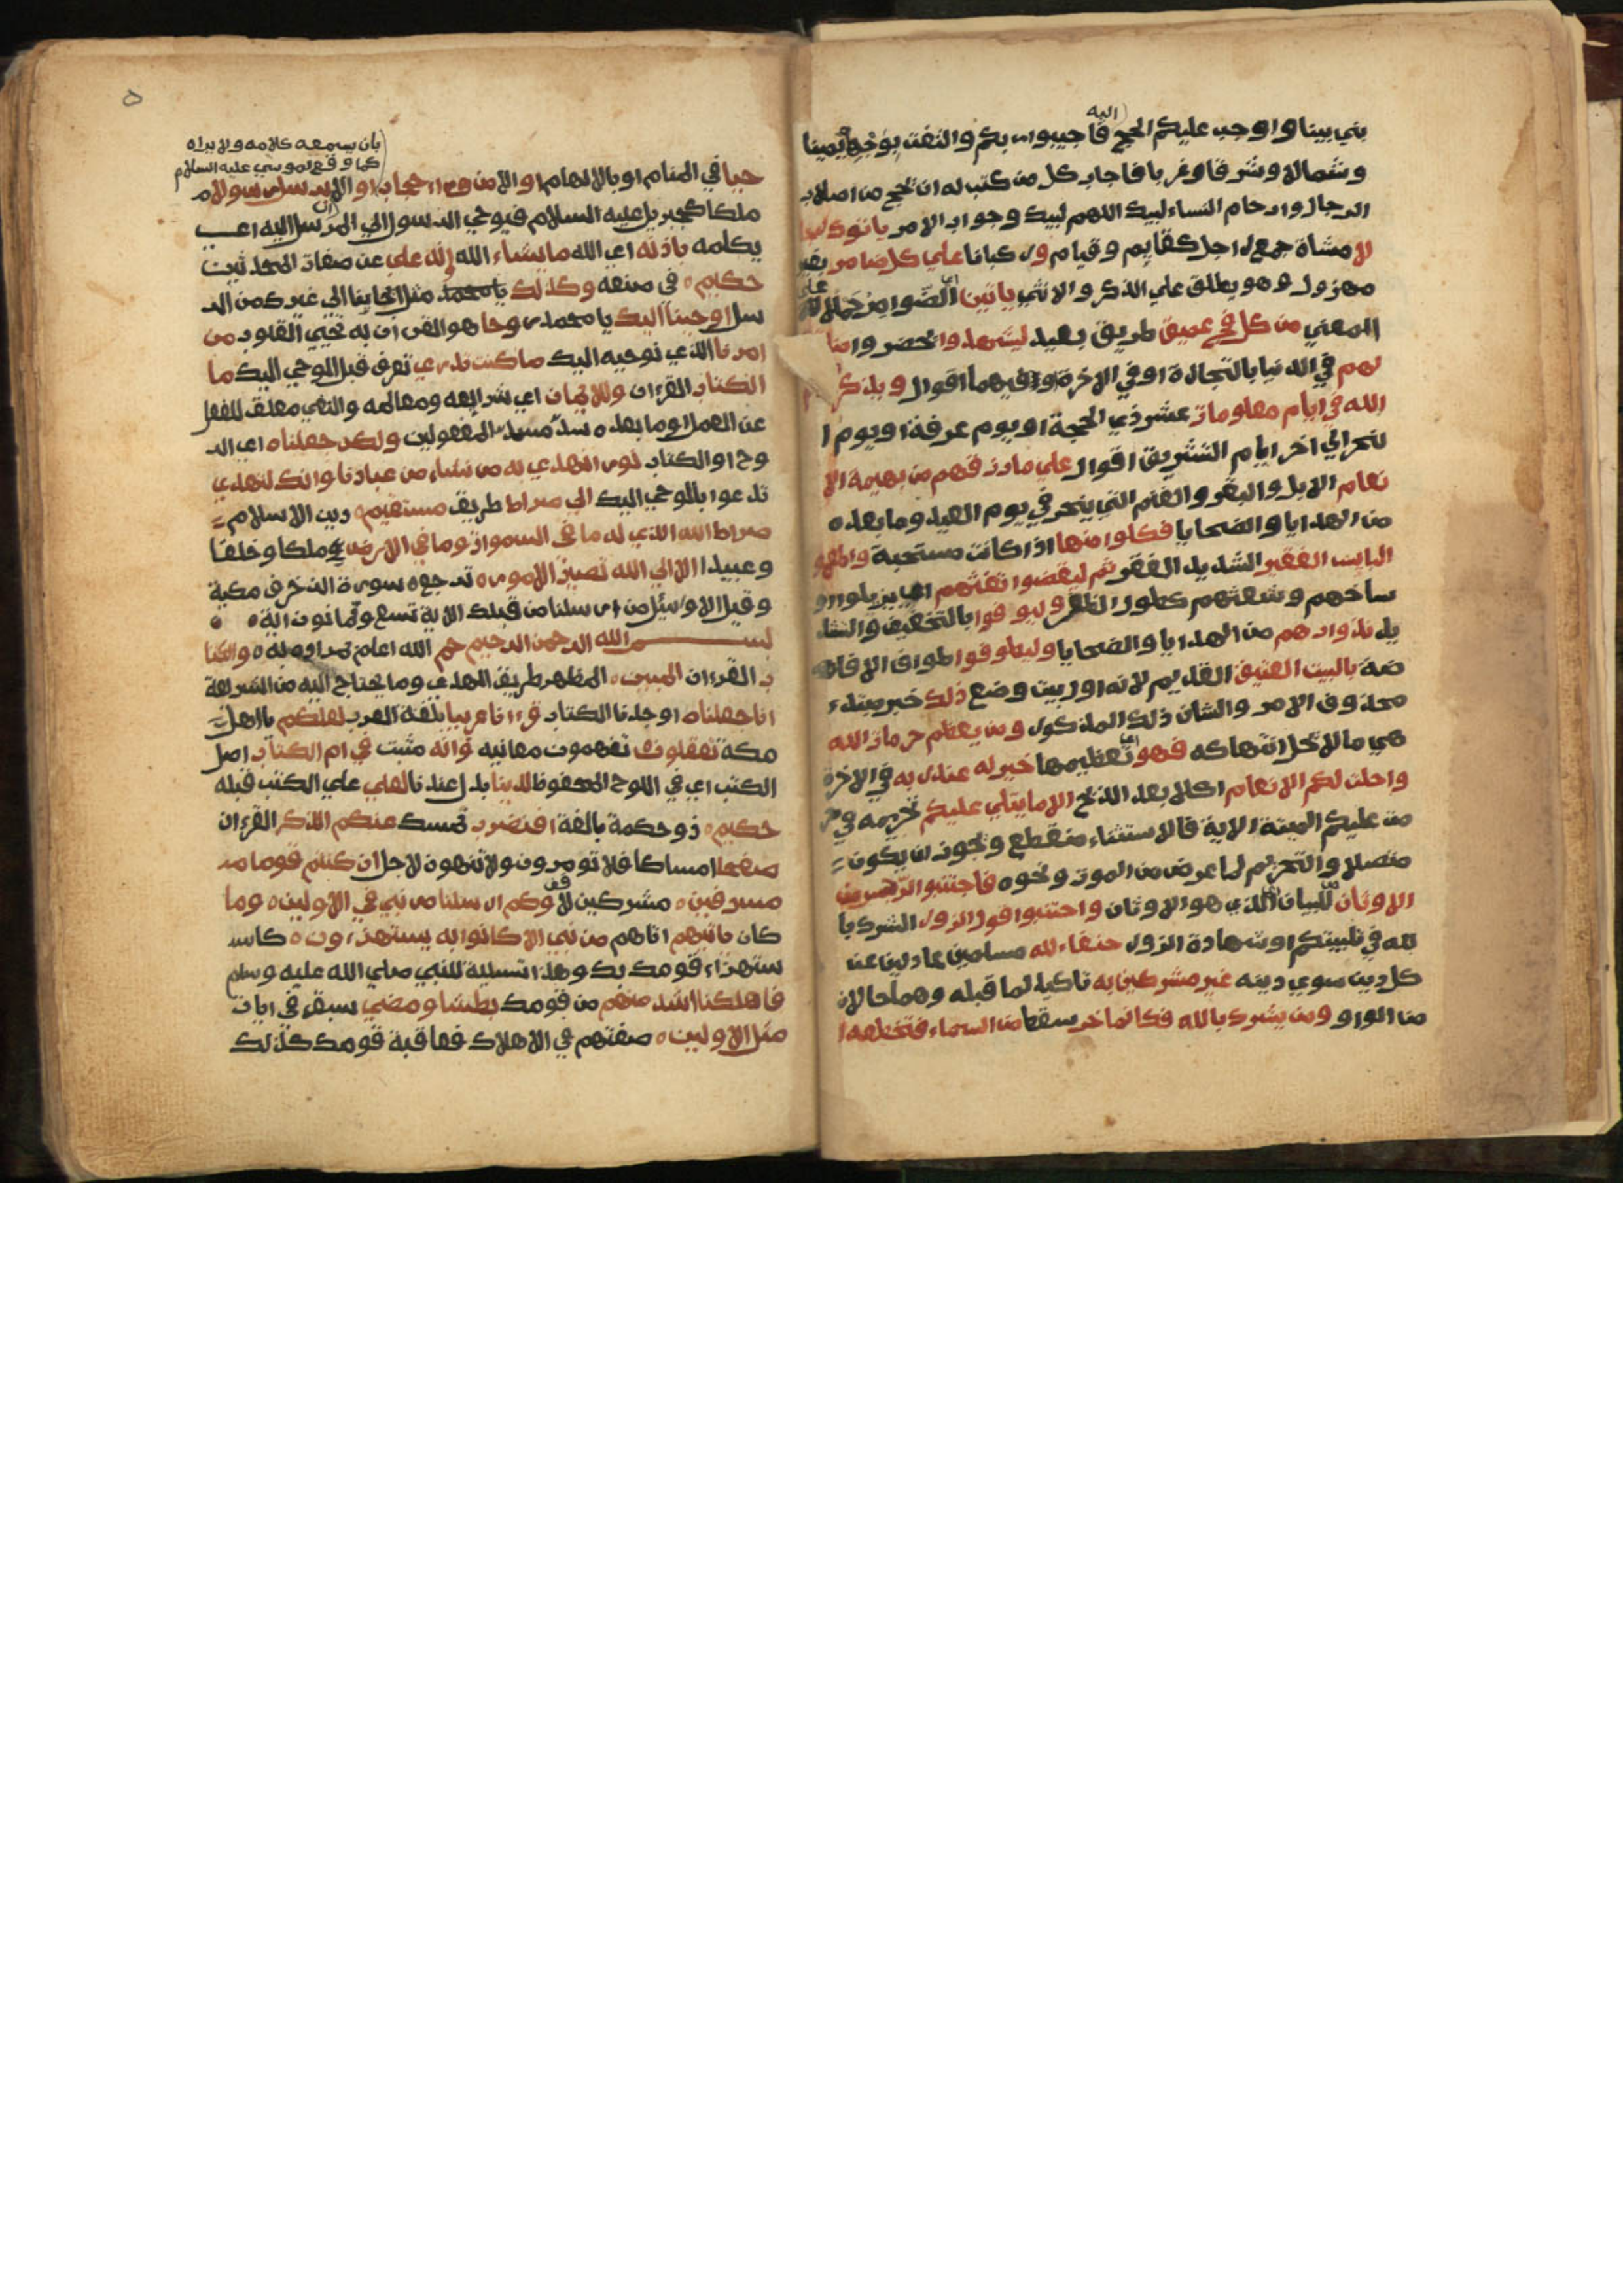 اليه
بني بيتا واوجب عليكم الحج فاجيبوا ربكم والتفت بوجهه يمينا
وشمالا وشرفا وغربا فاجابه كل من كتب له ان يحج من اصلاب
الرجال وارحام النساء لبيك اللهم لبيك وجواب الامر ياتوك رجا
لا مشاة جمع راجل كقايم وقيام وركبانا علي كل ضامر بعير
مهزول وهو يطلق علي الذكر والانثي ياتين اي الضوامر حملا علي
المعني من كل فج عميق طريق بعيد ليشهدوا يحضروا منا
لهم في الدنيا بالتجارة او في الاخرة او فيهما اقوال ويذكروا
الله في ايام معلومات عشر ذي الحجة او يوم عرفة او يوم ا
لنحر الي اخر ايام التشريق اقوال علي ما رزقهم من بهيمة الا
نعام الابل والبقر والغنم التي ينحر في يوم العيد وما بعده
من الهدايا والضحايا فكلوا منها اذا كانت مستحبة واطعموا
البايس الفقير الشديد الفقر ثم ليقضوا تفثهم اي يزيلوا او
ساخهم وشعثهم كطول الظفر وليوفوا بالتخفيف والتشد
يد نذورهم من الهدايا والضحايا وليطوفوا طواف الافا
ضة بالبيت العتيق القديم لانه اول بيت وضع ذلك خبر مبتدء
محذوف الامر والشان ذلك المذكور ومن يعظم حرمات الله
هي ما لا تحل انتهاكه فهو اي تعظيمها خير له عند ربه في الاخرة
واحلت لكم الانعام اكلا بعد الذبح الا ما يتلي عليكم تحريمه في حر
مت عليكم الميتة الاية فالاستثناء منقطع ويجوز ان يكون
متصلا والتحريم لما عرض من الموت ونحوه فاجتنبوا الرجس من
الاوثان من للبيان اي الذي هو الاوثان واجتنبوا قول الزور الشرك با
لله في تلبيتكم او شهادة الزور حنفاء لله مسلمين عادلين عن
كل دين سوي دينه غير مشركين به تاكيد لما قبله وهما حالان
من الواو ومن يشرك بالله فكانما خر سقط من السماء فتخطفه ا
٥
بان يسمعه كلامه ولا يراه
كما وقع لموسي عليه السلام
حيا في المنام او بالالهام او الا من وراء حجاب او الا ان يرسل رسولا
ملكا كجبريل عليه السلام فيوحي الرسول الي المرسل اليه اي
يكلمه باذنه اي الله ما يشاء الله انه علي عن صفات المحدثين
حكيم في صنعه وكذلك يا محمد مثل ايحاينا الي غيرك من الر
سل اوحينا اليك يا محمد روحا هو القران به تحيي القلوب من
امرنا الذي نوحيه اليك ما كنت تدري تعرف قبل الوحي اليك ما
الكتاب القرءان ولا الايمان اي شرايعه ومعالمه والنفي معلق للفعل
عن العمل او ما بعده سد مسد المفعولين ولكن جعلناه اي الر
وح او الكتاب نورا نهدي به من نشاء من عبادنا وانك لتهدي
تدعوا بالوحي اليك الي صراط طريق مستقيم دين الاسلام
صراط الله الذي له ما في السموات وما في الارض ملكا وخلقا
وعبيدا الا الي الله تصير الامور ترجع سورة الزخرف مكية
وقيل الا وسئل من ارسلنا من قبلك الاية تسع وثمانون اية
بسم الله الرحمن الرحيم حم الله اعلم بمراده به والكتا
ب القرءان المبين المظهر طريق الهدي وما يحتاج اليه من الشريعة
انا جعلناه اوجدنا الكتاب قرءانا عربيا بلغة العرب لعلكم يا اهل
مكة تعقلون تفهمون معانيه وانه مثبت في ام الكتاب اصل
الكتب اي في اللوح المحفوظ لدينا بدل عندنا لعلي علي الكتب قبله
حكيم ذو حكمة بالغة افنضرب نمسك عنكم الذكر القرءان
صفحا امساكا فلا تومرون ولا تنهون لاجل ان كنتم قوما مـ
سرفين مشركين لا وكم ارسلنا من نبي في الاولين وما
كان ياتيهم اتاهم من نبي الا كانوا به يستهزءون كاسـ
ستهزاء قومك بك وهذا تسلية للنبي صلي الله عليه وسلم
فاهلكنا اشد منهم من قومك بطشا ومضي سبق في ايات
مثل الاولين صفتهم في الاهلاك فعاقبة قومك كذلك